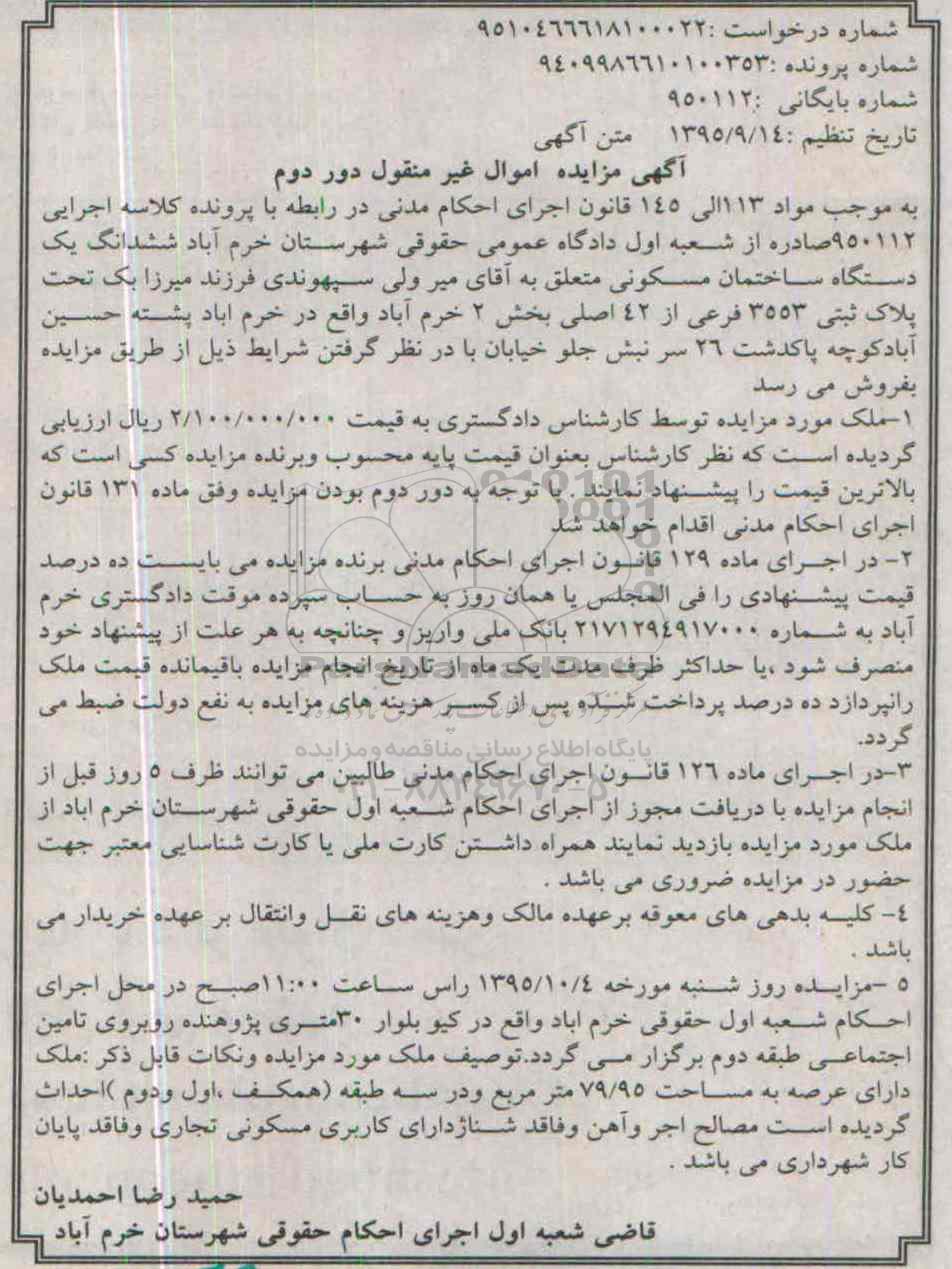 شماره درخواست :۹۵۱۰۴۶۶۶۱۸۱۰۰۰۲۲
شماره پرونده :۹۴۰۹۹۸۶۶۱۰۱۰۰۳۵۳
شماره بایگانی :۹۵۰۱۱۲
تاریخ تنظیم :۱۳۹۵/۹/۱۴ متن آگهی
آگهی مزایده اموال غیر منقول دور دوم
به موجب مواد ۱۱۳الی ۱۴۵ قانون اجرای احکام مدنی در رابطه با پرونده کلاسه اجرایی
۹۵۰۱۱۲صادره از شعبه اول دادگاه عمومی حقوقی شهرستان خرم آباد ششدانگ یک
دستگاه ساختمان مسکونی متعلق به آقای میر ولی سپهوندی فرزند میرزا بک تحت
پلاک ثبتی ۳۵۵۳ فرعی از ۴۲ اصلی بخش ۲ خرم آباد واقع در خرم اباد پشته حسین
آبادکوچه پاکدشت ۲۶ سر نبش جلو خیابان با در نظر گرفتن شرایط ذیل از طریق مزایده
بفروش می رسد
۱-ملک مورد مزایده توسط کارشناس دادگستری به قیمت ۲/۱۰۰/۰۰۰/۰۰۰ ریال ارزیابی
گردیده است که نظر کارشناس بعنوان قیمت پایه محسوب وبرنده مزایده کسی است که
بالاترین قیمت را پیشنهاد نمایند . با توجه به دور دوم بودن مزایده وفق ماده ۱۳۱ قانون
اجرای احکام مدنی اقدام خواهد شد
۲- در اجرای ماده ۱۲۹ قانون اجرای احکام مدنی برنده مزایده می بایست ده درصد
قیمت پیشنهادی را فی المجلس یا همان روز به حساب سپرده موقت دادگستری خرم
آباد به شماره ۲۱۷۱۲۹۴۹۱۷۰۰۰ بانک ملی واریز و چنانچه به هر علت از پیشنهاد خود
منصرف شود ،یا حداکثر ظرف مدت یک ماه از تاریخ انجام مزایده باقیمانده قیمت ملک
رانپردازد ده درصد پرداخت شده پس از کسر هزینه های مزایده به نفع دولت ضبط می
گردد.
پایگاه اطلاع رسانی مناقصه ومزایده
۳-در اجرای ماده ۱۲۶ قانون اجرای احکام مدنی طالبین می توانند ظرف ۵ روز قبل از
انجام مزایده با دریافت مجوز از اجرای احکام شعبه اول حقوقی شهرستان خرم اباد از
ملک مورد مزایده بازدید نمایند همراه داشتن کارت ملی یا کارت شناسایی معتبر جهت
حضور در مزایده ضروری می باشد .
۴- کلیه بدهی های معوقه برعهده مالک وهزینه های نقل وانتقال بر عهده خریدار می
باشد .
۵ -مزایده روز شنبه مورخه ۱۳۹۵/۱۰/۴ راس ساعت ۱۱:۰۰صبح در محل اجرای
احکام شعبه اول حقوقی خرم اباد واقع در کیو بلوار ۳۰متری پژوهنده روبروی تامین
اجتماعی طبقه دوم برگزار می گردد.توصیف ملک مورد مزایده ونکات قابل ذکر :ملک
دارای عرصه به مساحت ۷۹/۹۵ متر مربع ودر سه طبقه (همکف ،اول ودوم )احداث
گردیده است مصالح اجر وآهن وفاقد شناژدارای کاربری مسکونی تجاری وفاقد پایان
کار شهرداری می باشد .
حمید رضا احمدیان
قاضی شعبه اول اجرای احکام حقوقی شهرستان خرم آباد